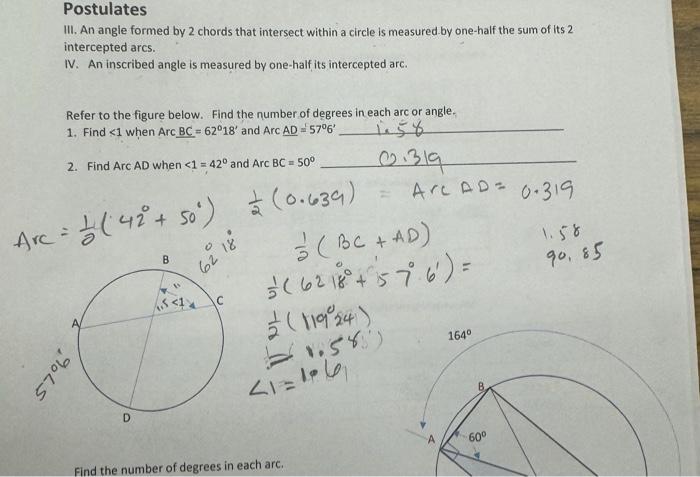 Postulates
III. An angle formed by 2 chords that intersect within a circle is measured by one-half the sum of its 2
intercepted arcs.
IV. An inscribed angle is measured by one-half its intercepted arc.
Refer to the figure below. Find the number of degrees in each arc or angle.
1. Find <1 when Arc BC = 62⁰18' and Arc AD = 57⁰6' 1.58
2. Find Arc AD when <1 = 42⁰ and Arc BC = 50⁰ 0.319
Arc = ½ (42° + 50°) ½ (0.639) = Arc AD = 0.319
½ (BC + AD)
1.58
90.85
½ (62 18° + 57° 6') =
½ (119° 24)
= 1.58
<1 = 1.6
B
62° 18'
<1
C
A
57°06'
D
164⁰
B
A
60⁰
Find the number of degrees in each arc.